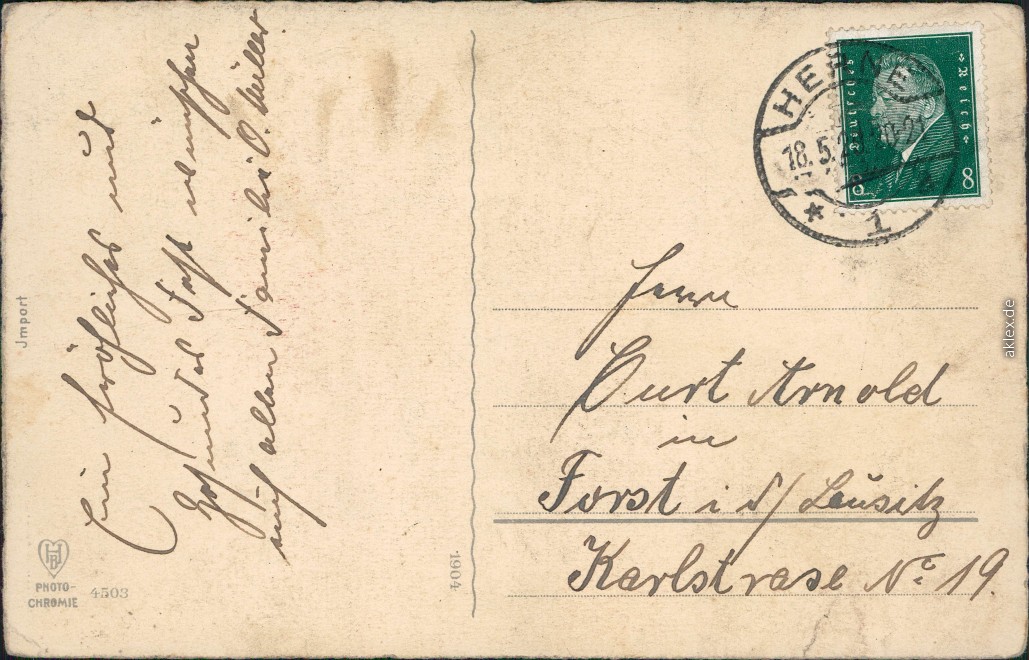 Ein fröhliches und
gesundes Fest wünschen
euch allen Familie O. Müller.
Jmport
HB
PHOTO-
CHROMIE
4503
1904
HERNE
18.5.29 20-21
* 1
Deutsches Reich
8 8
Herrn
Curt Arnold
in
Forst i d/ Lausitz
Karlstrase No 19.
aklex.de